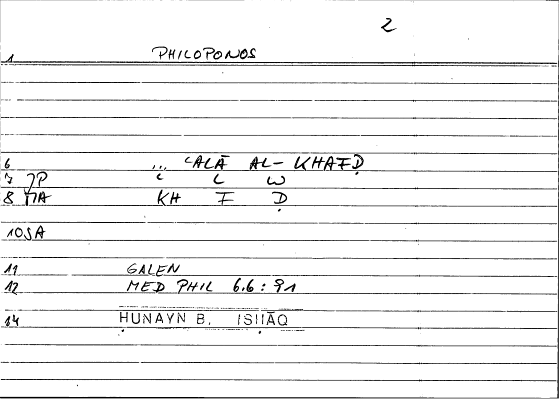 2
1 PHILOPONOS
6 ... ʿALĀ AL-KHAFḌ
7 JP ʿ L W
8 MA KH F Ḍ
10 SA
11 GALEN
12 MED PHIL 6.6 : 91
14 ḤUNAYN B. ISḤĀQ